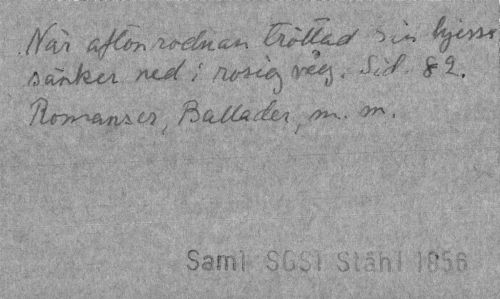 När aftonrodnan tröttad sin hjessa
sänker ned i rosig våg. Sid. 82.
Romanser, Ballader, m. m.
Saml SGS1 Ståhl 1856